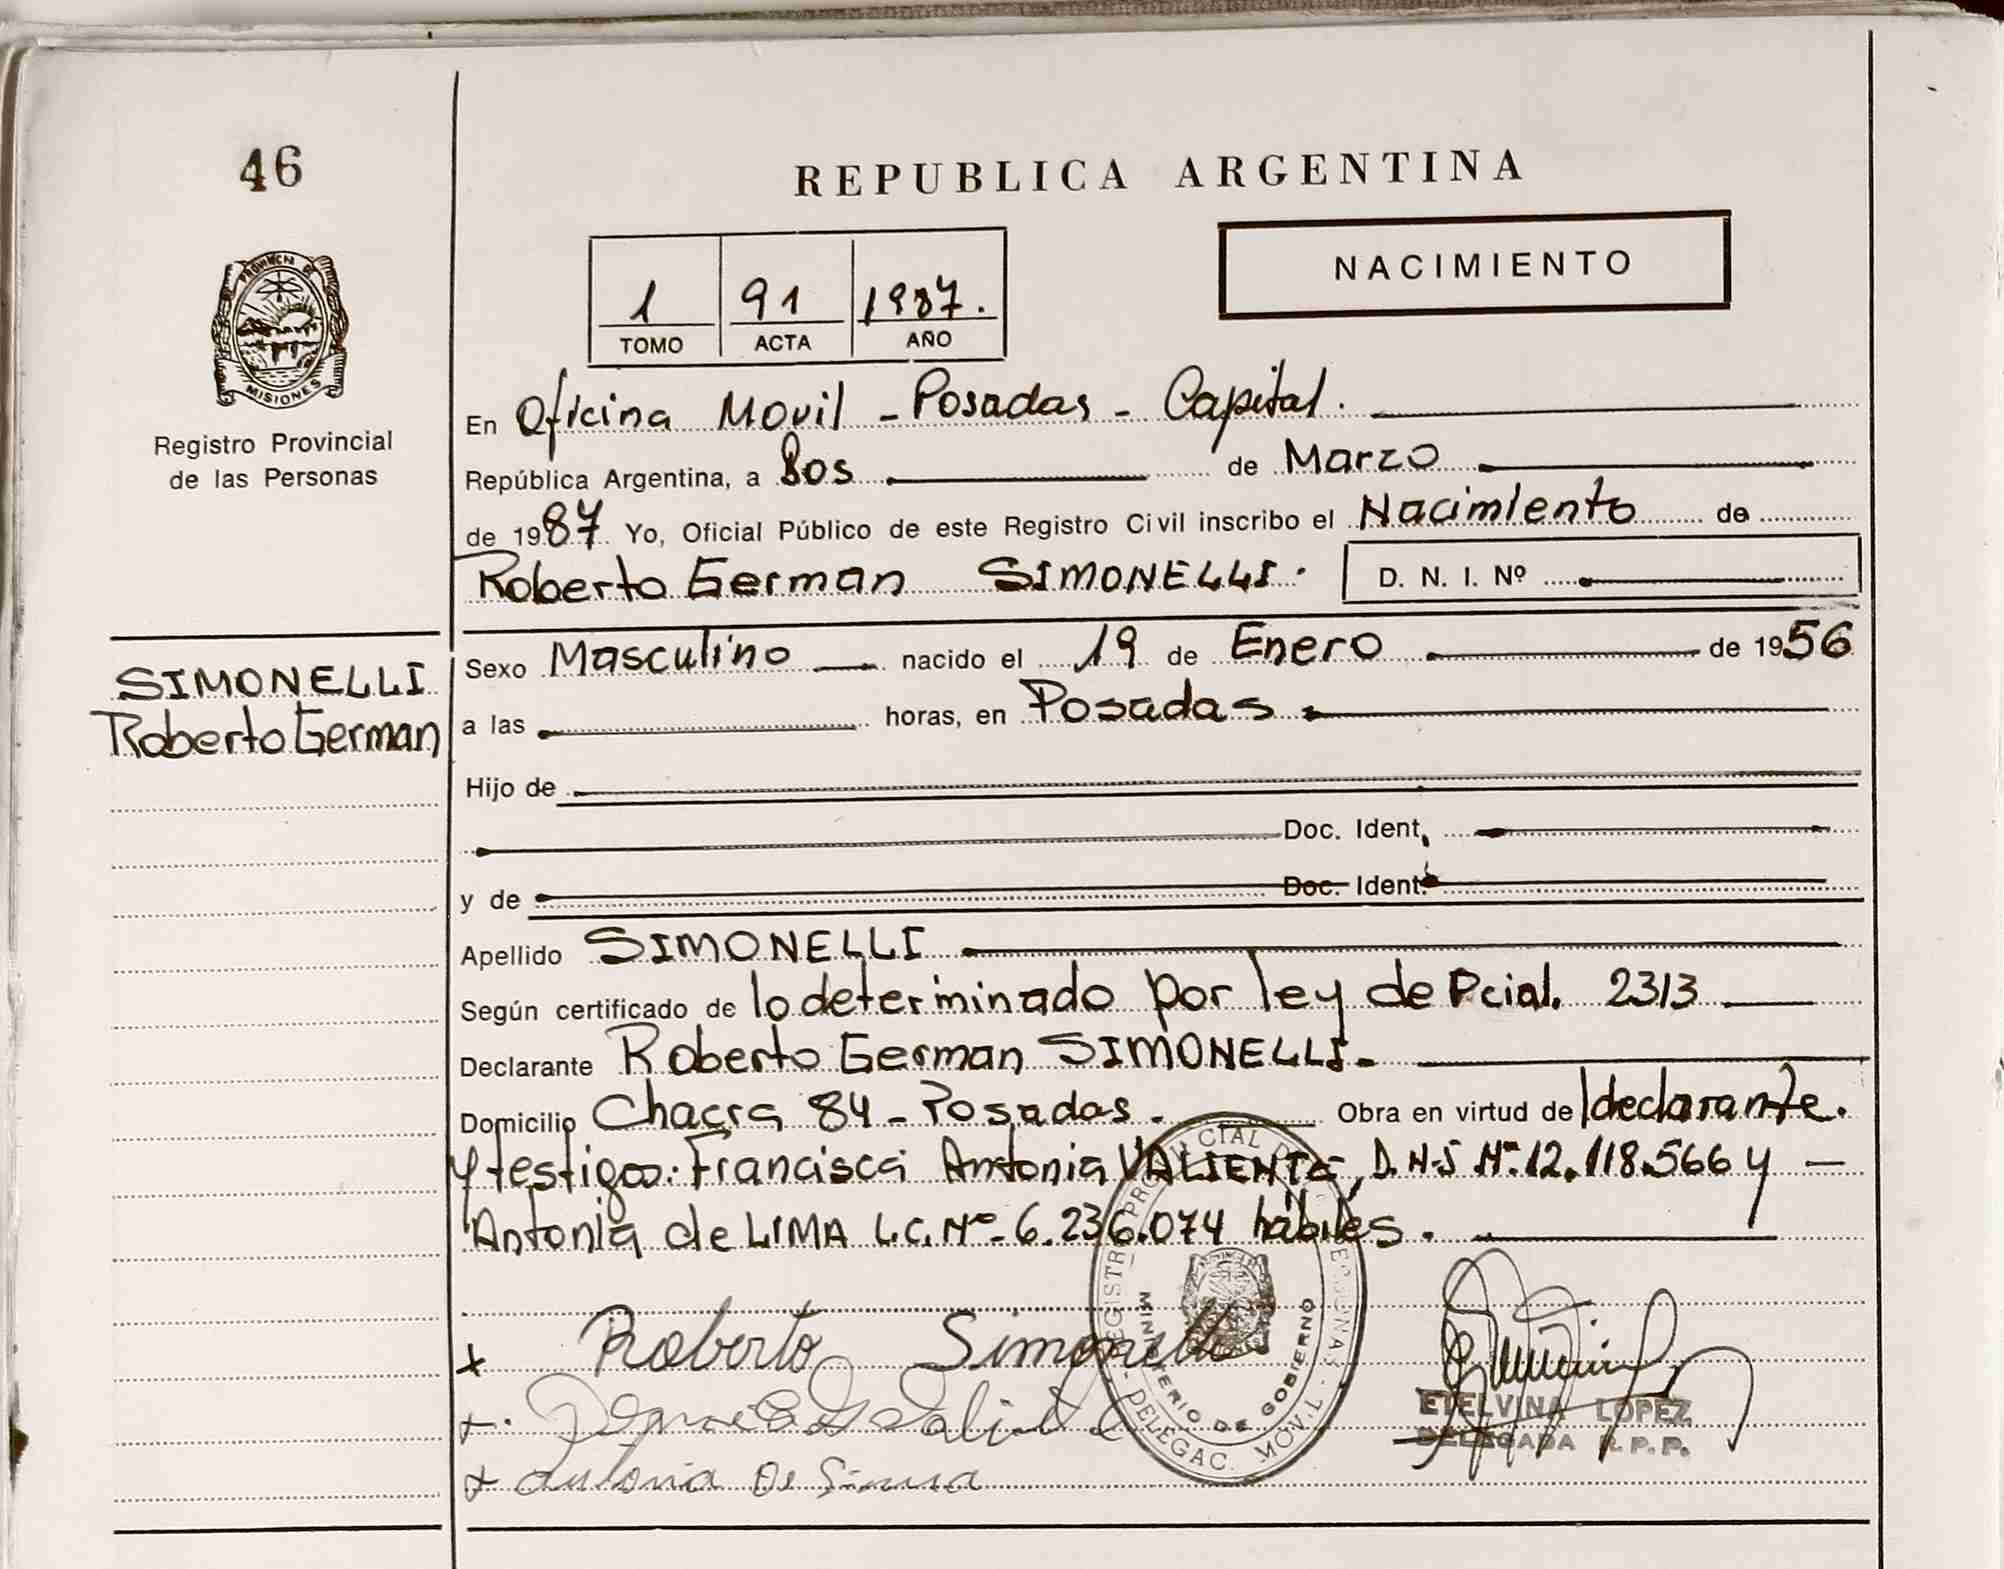 46
REPUBLICA ARGENTINA
PROVINCIA DE
MISIONES
Registro Provincial
de las Personas
NACIMIENTO
1 91 1987.
TOMO ACTA AÑO
En Oficina Movil - Posadas - Capital.
República Argentina, a Dos de Marzo
de 1987 Yo, Oficial Público de este Registro Civil inscribo el Nacimiento de
Roberto German SIMONELLI. D. N. I. Nº
SIMONELLI
Roberto German
Sexo Masculino nacido el 19 de Enero de 1956
a las horas, en Posadas
Hijo de
Doc. Ident.
y de Doc. Ident.
Apellido SIMONELLI
Según certificado de lo determinado por ley de Pcial. 2313
Declarante Roberto German SIMONELLI.
Domicilio Chacra 84 - Posadas. Obra en virtud de l declarante.
y testigos: Francisca Antonia VALIENTE, D.N.I Nº. 12.118.566 y
Antonia de LIMA L.C. Nº. 6.236.074 hábiles.
REGISTRO PROVINCIAL DE PERSONAS - DELEGAC. MOVIL
MINISTERIO DE GOBIERNO
x Roberto Simonelli
x Antonia De
ETELVINA LOPEZ
DELEGADA R.P.P.